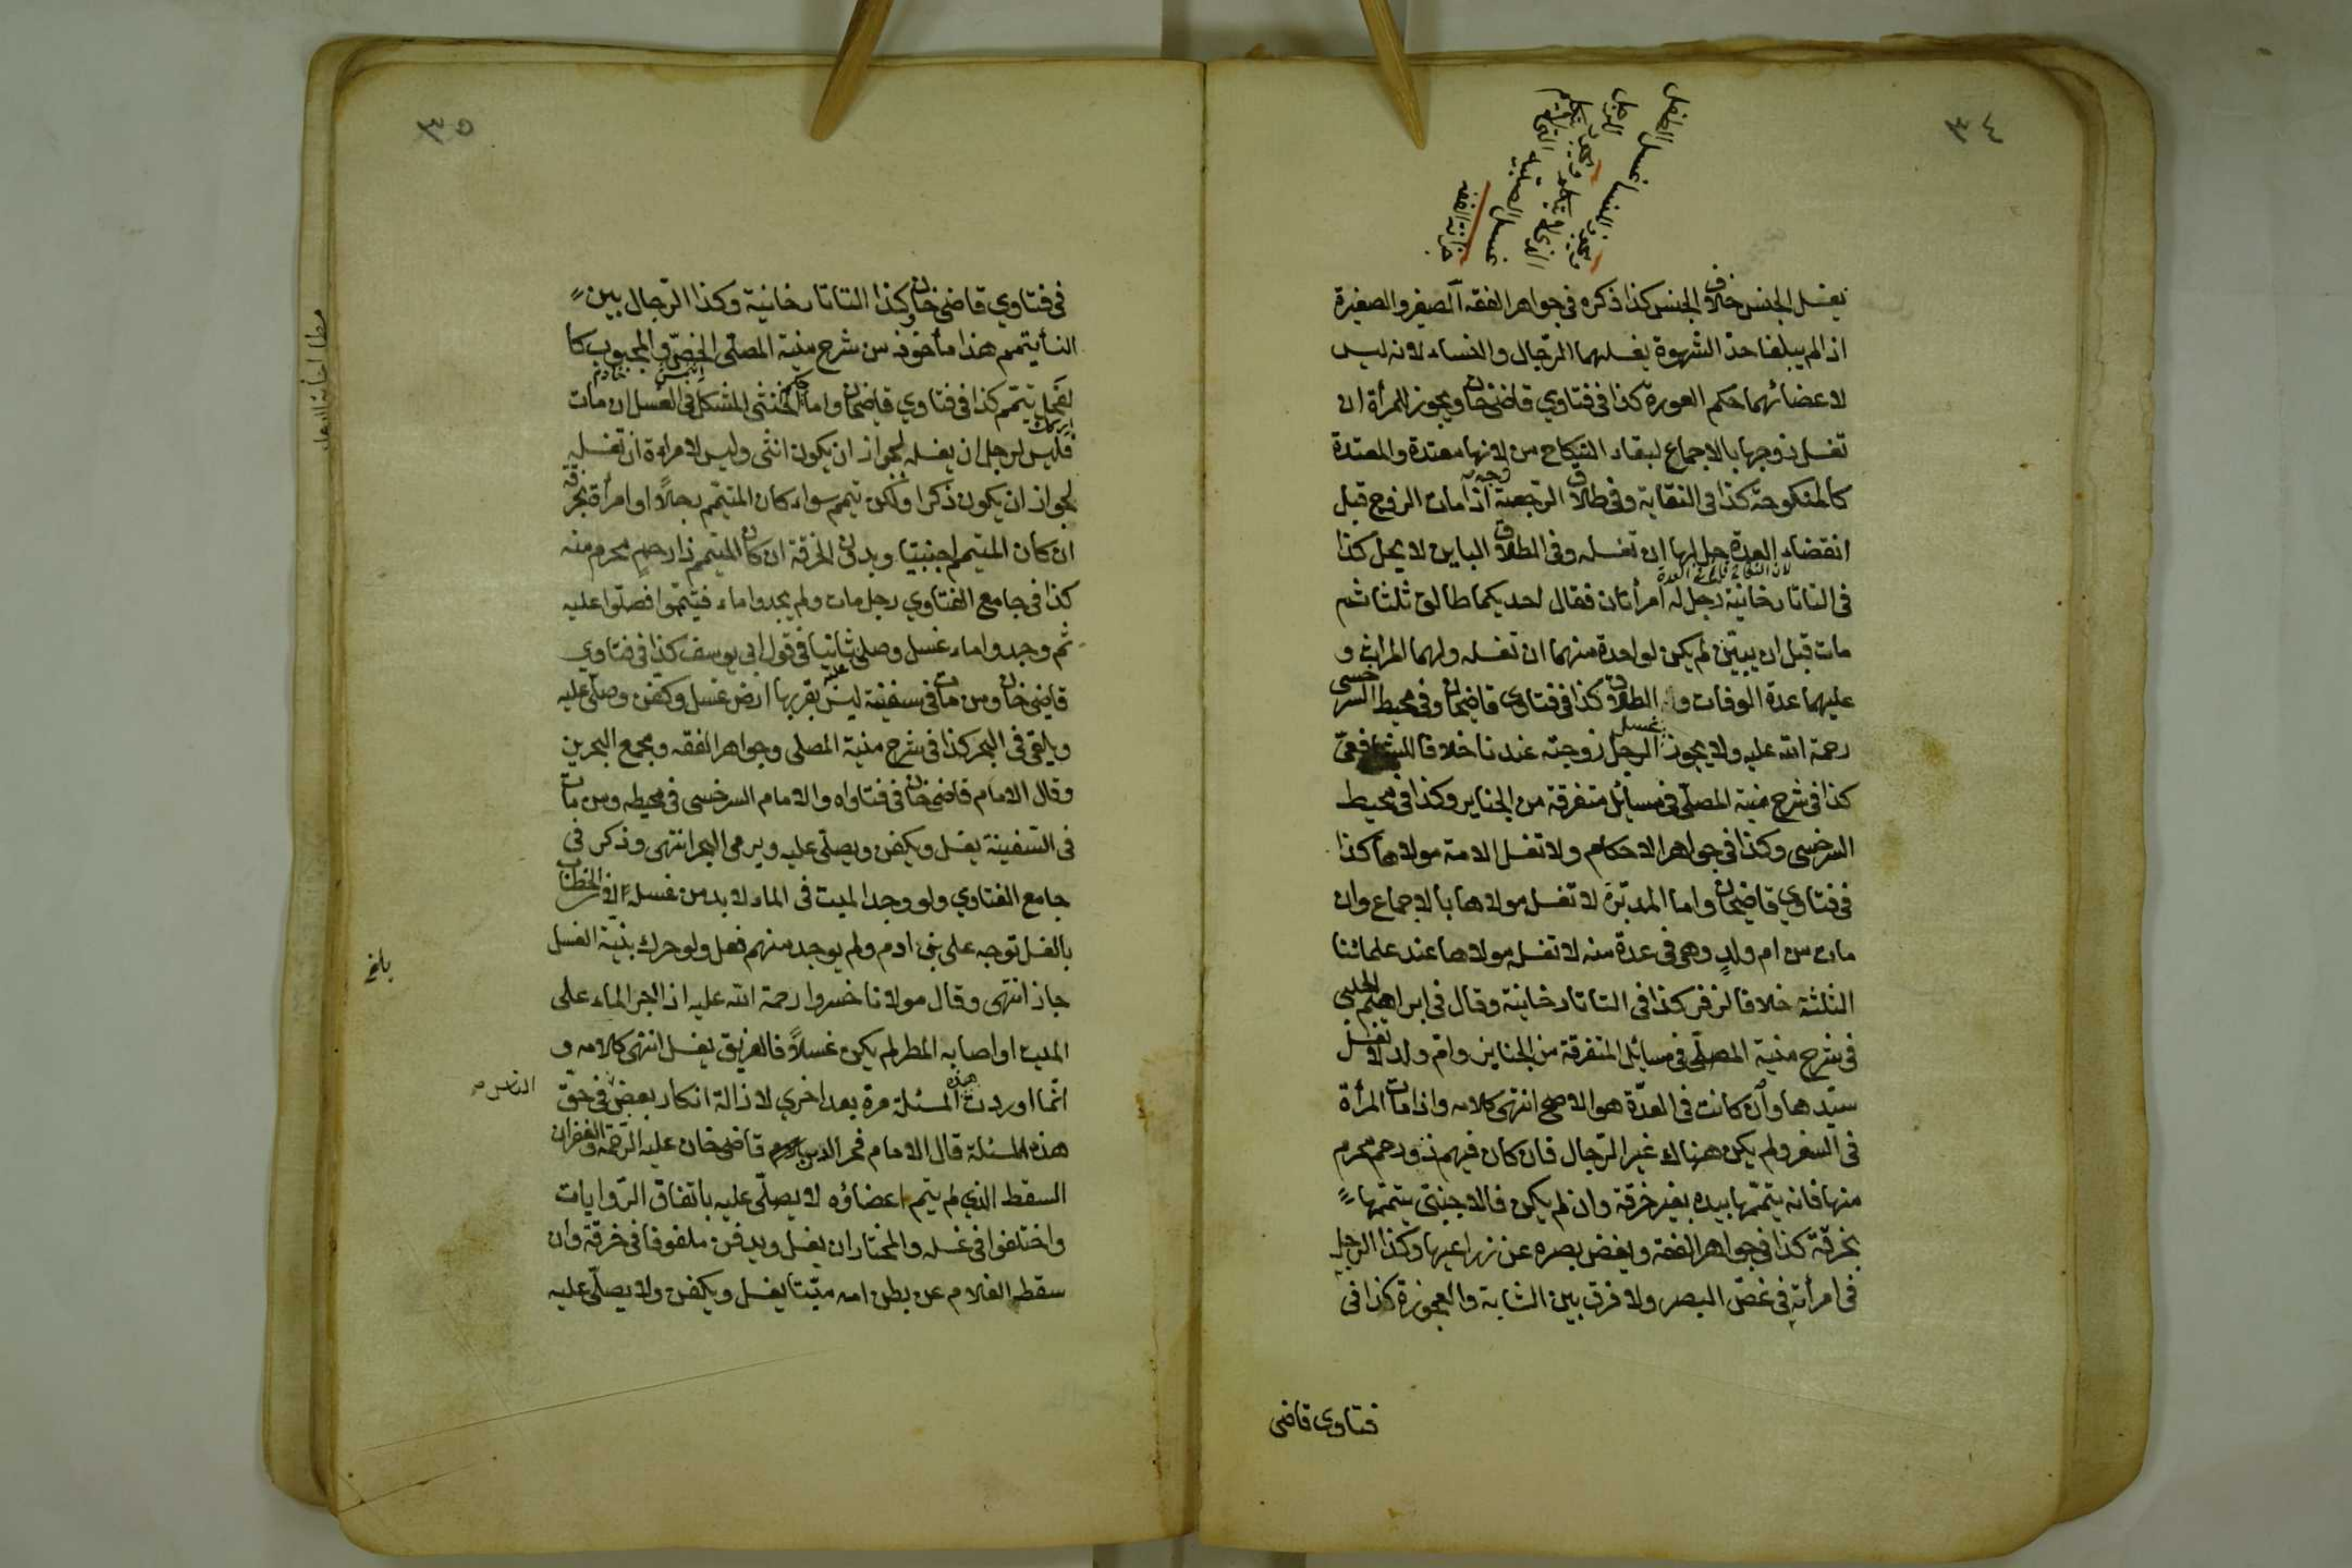 ٣٤
ويجوز للنساء غسل الطفل
ويجوز الرجل
الذي لا يتكلم
غسل الصبية التي لا تتكلم
خزانة الفقه
يغسل الجنس خلاف الجنس كذا ذكره في جواهر الفقه الصغير والصغيرة
اذا لم يبلغا حد الشهوة يغسلهما الرجال والنساء لانه ليس
لاعضائهما حكم العورة كذا في فتاوي قاضيخان ويجوز للمرأة ان
تغسل زوجها بالاجماع لبقاء النكاح من لانها معتدة والمعتدة
كالمنكوحة كذا في النقاية وفي طلاق الرجعية اذا مات الزوج قبل
انقضاء العدة حل لها ان تغسله وفي الطلاق الباين لا يحل كذا
في التاتارخانية رجل له امرأتان فقال احديكما طالق ثلثا ثم
مات قبل ان يبين لم يكن لواحدة منهما ان تغسله ولهما الميراث و
عليهما عدة الوفات والطلاق كذا في فتاوي قاضيخان وفي محيط السرخسي
رحمة الله عليه ولا يجوز غسل الرجل زوجته عندنا خلافا للشافعي
كذا في شرح منية المصلي في مسائل متفرقة من الجنايز وكذا في محيط
السرخسي وكذا في جواهر الاحكام ولا تغسل الامة مولاها كذا
في فتاوي قاضيخان واما المدبّرة لا تغسل مولاها بالاجماع وان
مات من ام ولدٍ وهي في عدة منه لا تغسل مولاها عند علمائنا
الثلثة خلافا لزفر كذا في التاتارخانية وقال في ابراهيم الحلبي
في شرح منية المصلّي في مسائل المتفرقة من الجنايز وام ولد لا تغسل
سيّدها وان كانت في العدّة هو الاصح انتهى كلامه واذا مات المرأة
في السفر ولم يكن هناك غير الرّجال فان كان فيهم ذو رحم محرم
منها فانه يتممّها بيده بغير خرقة وان لم يكن فالاجنبيّ يتممّها
بخرقة كذا في جواهر الفقه ويغض بصره عن زراعيها وكذا الرجل
في امرأته في غضّ البصر ولا فرق بين الشابة والعجوزة كذا في
فتاوي قاضي
٣٥
في فتاوي قاضي خان وكذا التاتارخانية وكذا الرّجال بين
النسأ يتمم هذا مأخوذ من شرح منية المصلّي الخصّي والمجبوب كا
لفحل يتمم كذا في فتاوي قاضيخان واما الخنثى المشكل في الغسل ان مات
فليس لرجل ان يغسله لجواز ان يكون انثى وليس لامرأة ان تغسله
لجواز ان يكون ذكرا ولكن تيمم سواء كان المتيمّم رجلاً او امرأة بخرقة
ان كان المتيمم اجنبيّا وبدون الخرقة ان كان المتيمم ذا رحمٍ محرم منه
كذا في جامع الفتاوي رجل مات ولم يجدوا ماء فيتمموا فصلّوا عليه
ثم وجدوا ماء غسل وصلى ثانيا في قول ابي يوسف كذا في فتاوي
قاضي خان ومن مات في سفينة ليس بقربها ارض غسل وكفن وصلّي عليه
ويلقى في البحر كذا في شرح منية المصلي وجواهر الفقه ومجمع البحرين
وقال الامام قاضي خان في فتاواه والامام السرخسي في محيطه ومن مات
في السّفينة يغسل ويكفن ويصلّي عليه ويرمى البحر انتهى وذكر في
جامع الفتاوي ولو وجد الميت في الماء لا بد من غسله لان الخطاب
بالغسل توجه على بني ادم ولم يوجد منهم فعل ولو حرك بنية الغسل
جاز انتهى وقال مولانا خسروا رحمة الله عليه اذا الجر الماء على
الميت او اصابه المطر لم يكن غسلاً فالغريق يغسل انتهى كلامه و
انما اوردت هذه المسئلة مرة بعد اخري لازالة انكار بعض في حق
الناس صح
هذه المسئلة قال الامام فخر الدين قاضي خان عليه الرّحمة والغفران
السقط الذي لم يتم اعضاؤه لا يصلّي عليه باتفاق الرّوايات
واختلفوا في غسله والمختار ان يغسل ويدفن ملفوفا في خرقة وان
سقط الغلام عن بطن امه ميّتا يغسل ويكفن ولا يصلّي عليه